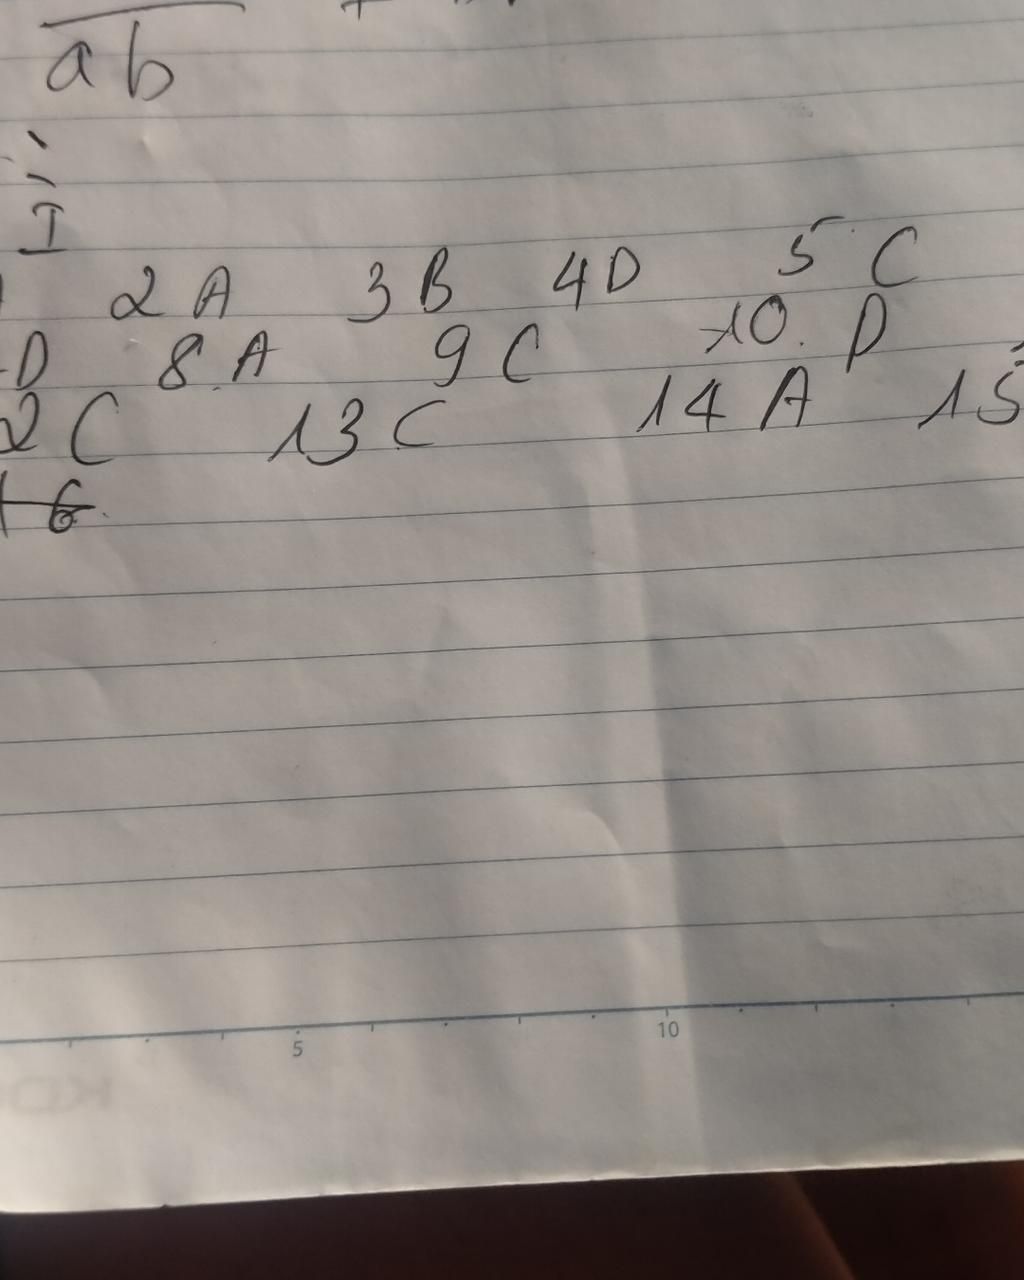 ab
I
2 A 3 B 4 D 5 C
D 8 A 9 C 10. D
2 C 13 C 14 A 15
16
5 10